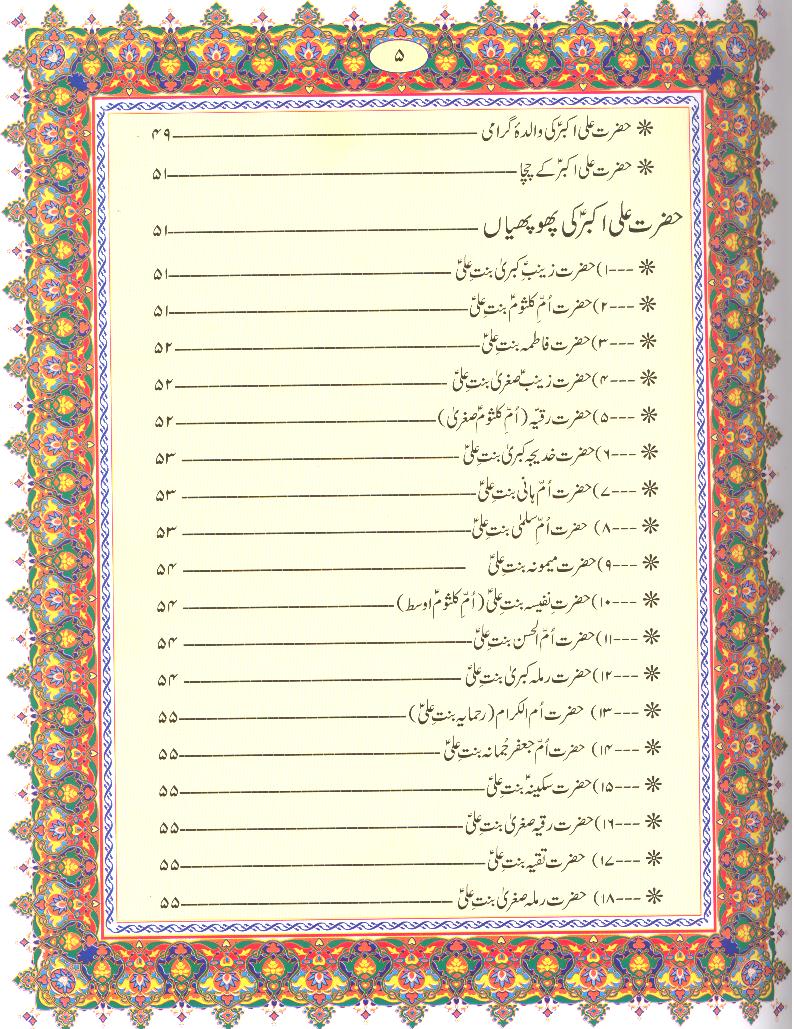 ۵
❋ حضرت علی اکبرؑ کی والدۂ گرامی ۴۹
❋ حضرت علی اکبرؑ کے چچا ۵۱
حضرت علی اکبرؑ کی پھوپھیاں ۵۱
❋ ---۱) حضرت زینبِؑ کبریٰ بنتِ علیؑ ۵۱
❋ ---۲) حضرت اُمِّ کلثومؑ بنتِ علیؑ ۵۱
❋ ---۳) حضرت فاطمہ بنتِ علیؑ ۵۲
❋ ---۴) حضرت زینبؑ صغریٰ بنتِ علیؑ ۵۲
❋ ---۵) حضرت رقیّہ (اُمِّ کلثومؑ صغریٰ) ۵۲
❋ ---۶) حضرت خدیجہ کبریٰ بنتِ علیؑ ۵۳
❋ ---۷) حضرت اُمِّ ہانی بنتِ علیؑ ۵۳
❋ ---۸) حضرت اُمِّ سلمیٰ بنتِ علیؑ ۵۳
❋ ---۹) حضرت میمونہ بنتِ علیؑ ۵۴
❋ ---۱۰) حضرتِ نفیسہ بنتِ علیؑ (اُمِّ کلثومؑ اوسط) ۵۴
❋ ---۱۱) حضرت اُمّ الحسن بنتِ علیؑ ۵۴
❋ ---۱۲) حضرت رملہ کبریٰ بنتِ علیؑ ۵۴
❋ ---۱۳) حضرت اُم الکرام (رحمایہ بنتِ علیؑ) ۵۵
❋ ---۱۴) حضرت اُمِّ جعفر جُمانہ بنتِ علیؑ ۵۵
❋ ---۱۵) حضرت سکینہؑ بنتِ علیؑ ۵۵
❋ ---۱۶) حضرت رقیہ صغریٰ بنتِ علیؑ ۵۵
❋ ---۱۷) حضرت تقیہ بنتِ علیؑ ۵۵
❋ ---۱۸) حضرت رملہ صغریٰ بنتِ علیؑ ۵۵